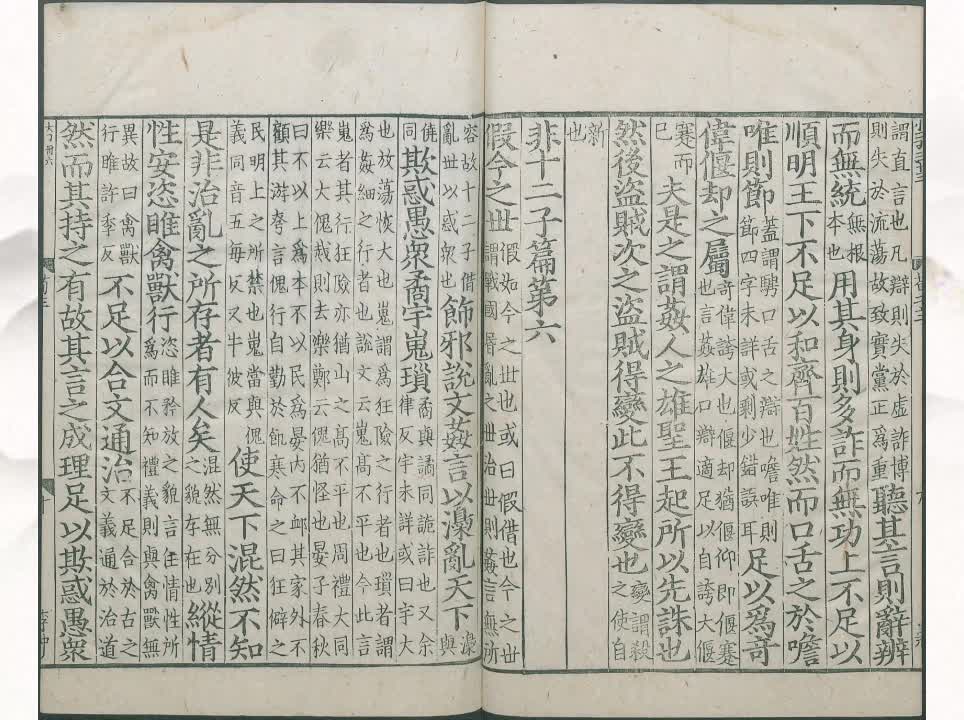 謂直言也凡辯則失於虛詐博
則失於流蕩故致實黨正爲重
聽其言則辭辨
而無統
無根
本也
用其身則多詐而無功上不足以
順明王下不足以和齊百姓然而口舌之於噡
唯則節
蓋謂騁口舌之辯也噡唯則
節四字未詳或剩少錯誤耳
足以爲奇
偉偃却之屬
奇偉誇大也偃却猶偃仰即偃蹇
也言姦雄口辯適足以自誇大偃
蹇而
已
夫是之謂姦人之雄聖王起所以先誅也
然後盜賊次之盜賊得變此不得變也
變謂殺
之使自
新
也
非十二子篇第六
假今之世
假如今之世也或曰假借也今之世
謂戰國昬亂之世治世則姦言無所
容故十二子借
亂世以惑衆也
飾邪說文姦言以濠亂天下
濠
與
僥
同
欺惑愚衆矞宇嵬瑣
矞與譎同詭詐也又余
律反宇未詳或曰宇大
也放蕩恢大也嵬謂爲狂險之行者也瑣者謂
爲姦細之行者也說文云嵬高不平也今此言
嵬者其行狂險亦猶山之高不平也周禮大司
樂云大傀烖則去樂鄭云傀猶怪也晏子春秋
曰不以上爲本不以民爲憂內不卹其家外不
顧其游夸言傀行自勤於飢寒命之曰狂僻之
民明上之所禁也嵬當與傀
義同音五每反又牛彼反
使天下混然不知
是非治亂之所存者有人矣
混然無分別
之貌存在也
縱情
性安恣睢禽獸行
恣睢矜放之貌言任情性所
爲而不知禮義則與禽獸無
異故曰禽獸
行睢許季反
不足以合文通治
不足合於古之
文義通於治道
然而其持之有故其言之成理足以欺惑愚衆